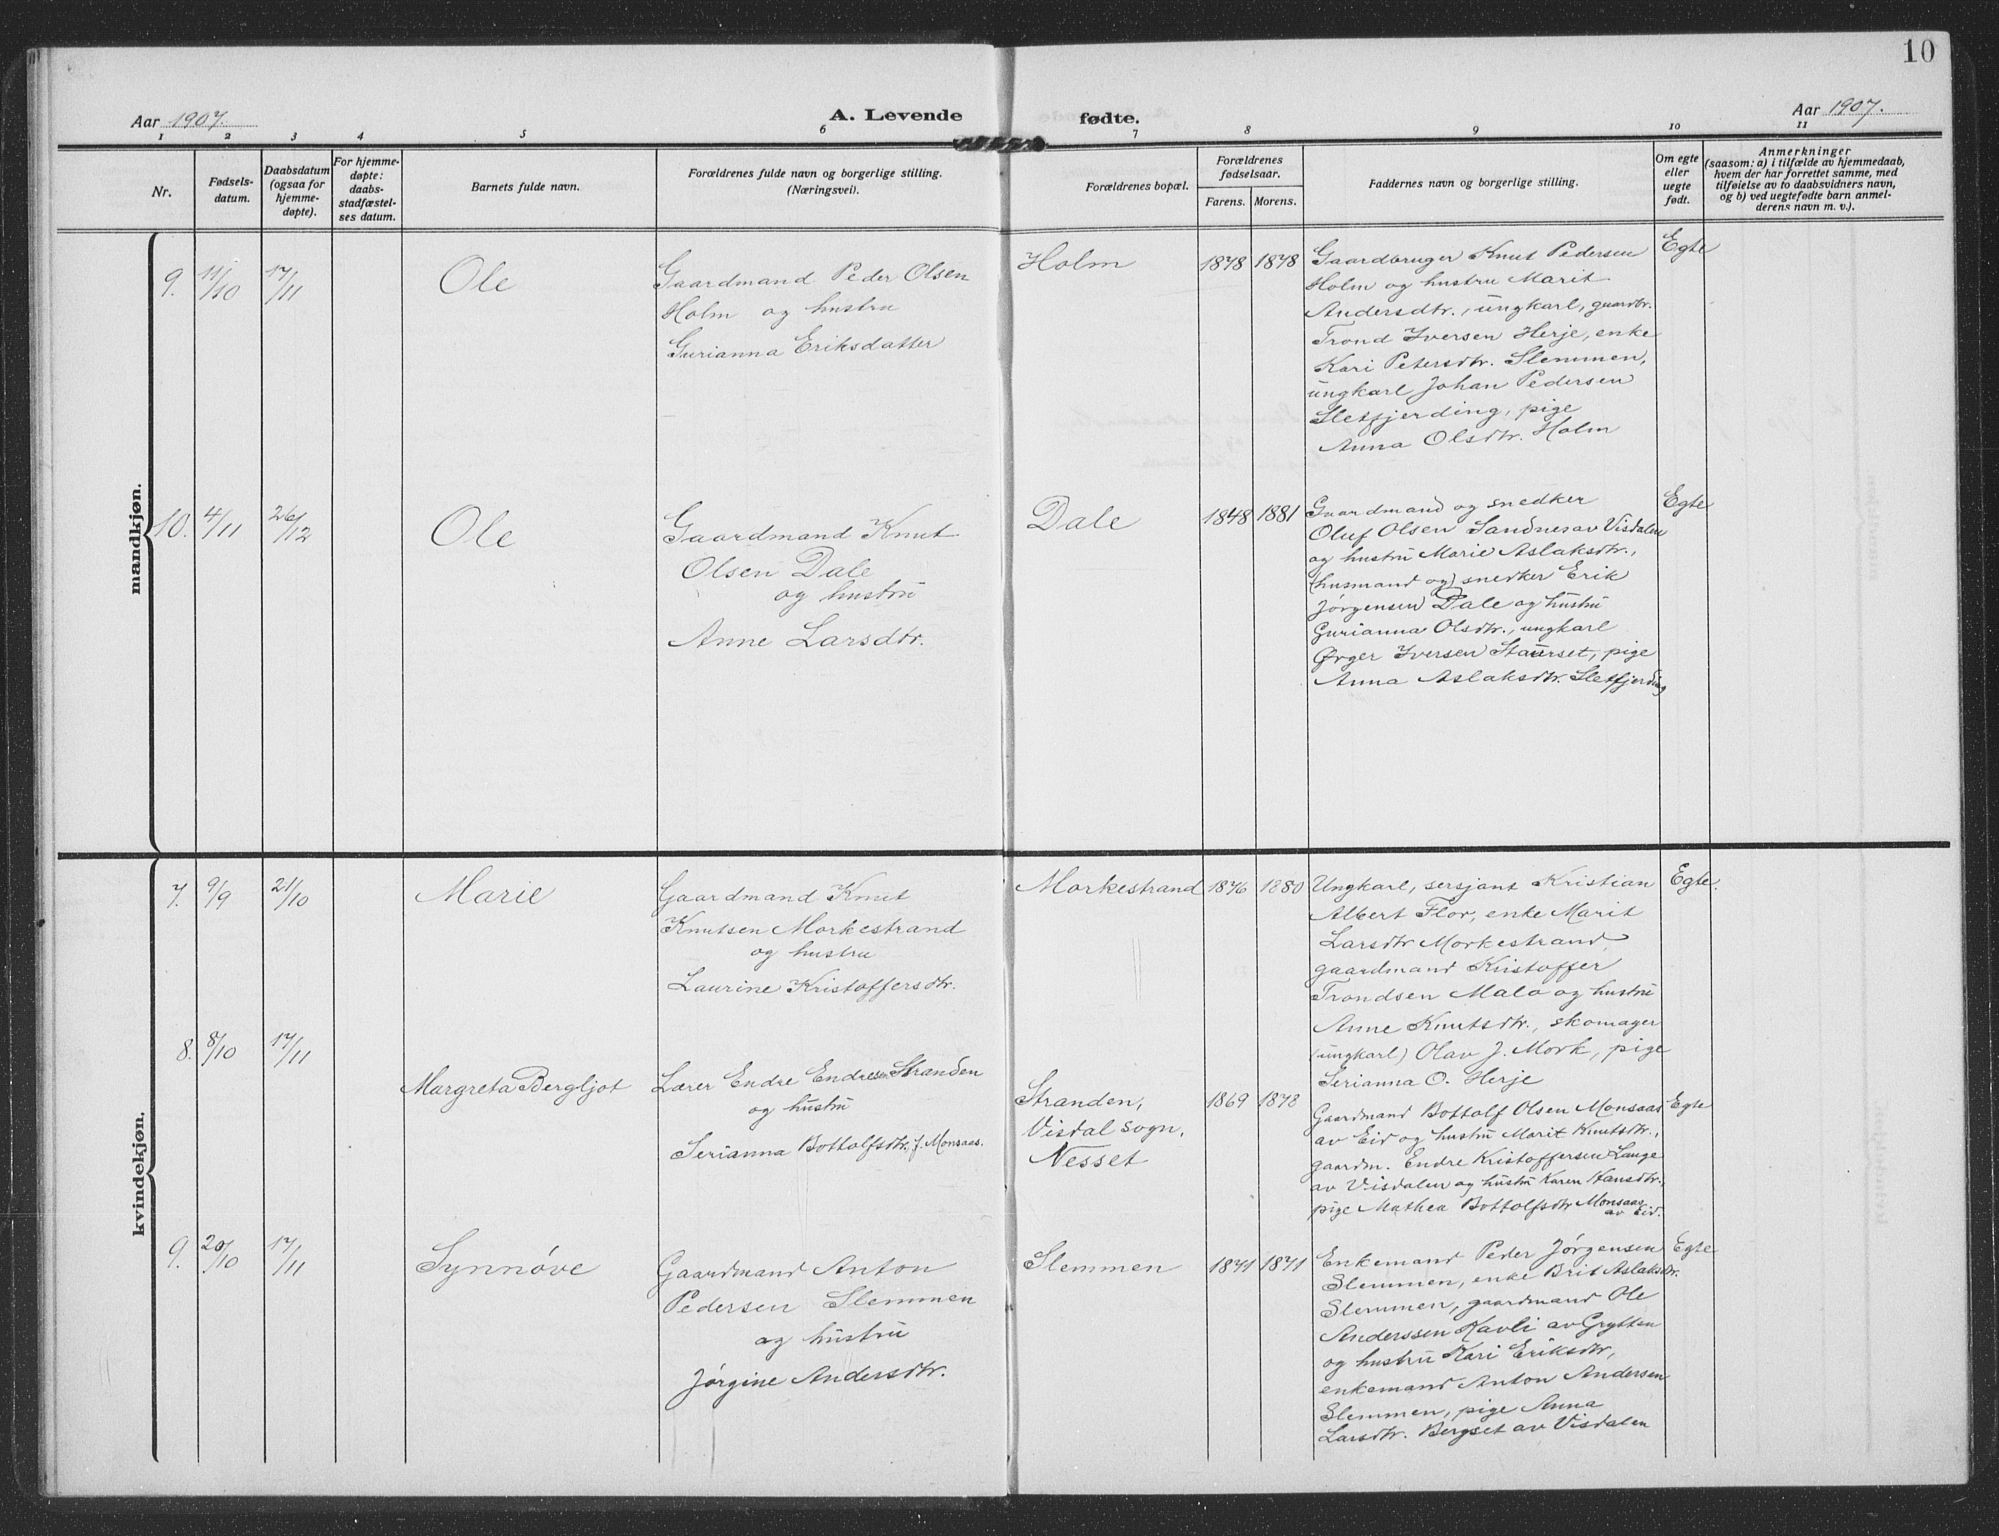 10
Aar 1907.
A. Levende fødte.
Aar 1907.
1 2 3 4 5 6 7 8 9 10 11
Nr.
Fødsels-
datum.
Daabsdatum
(ogsaa for
hjemme-
døpte).
For hjemme-
døpte:
daabs-
stadfæstel-
ses datum.
Barnets fulde navn.
Forældrenes fulde navn og borgerlige stilling.
(Næringsvei).
Forældrenes bopæl.
Forældrenes
fødselsaar.
Farens. Morens.
Faddernes navn og borgerlige stilling.
Om egte
eller
uegte
født.
Anmerkninger
(saasom: a) i tilfælde av hjemmedaab,
hvem der har forrettet samme, med
tilføielse av to daabsvidners navn,
og b) ved uegtefødte barn anmel-
derens navn m. v.).
mandkjøn.
9. 11/10 17/11
Ole
Gaardmand Peder Olsen
Holm og hustru
Gurianna Eriksdatter
Holm
1878 1878
Gaardbruger Knut Pedersen
Holm og hustru Marit
Andersdtr., ungkarl, gaardbr.
Trond Iversen Herje, enke
Kari Petersdtr. Slemmen,
ungkarl Johan Pedersen
Sletfjerding, pige
Anna Olsdtr. Holm
Egte
10. 4/11 26/12
Ole
Gaardmand Knut
Olsen Dale
og hustru
Anne Larsdtr.
Dale
1848 1881
Gaardmand og snedker
Oluf Olsen Sandnes av Visdalen
og hustru Marie Aslaksdtr.,
(husmand og) snedker Erik
Jørgensen Dale og hustru
Gurianna Olsdtr., ungkarl
Ørger Iversen Staurset, pige
Anna Aslaksdtr. Sletfjerding
Egte
kvindekjøn.
7. 9/9 21/10
Marie
Gaardmand Knut
Knutsen Morkestrand
og hustru
Laurine Kristoffersdtr.
Morkestrand
1876 1880
Ungkarl, sersjant Kristian
Albert Flor, enke Marit
Larsdtr Morkestrand,
gaardmand Kristoffer
Trondsen Malo og hustru
Anne Knutsdtr., skomager
(ungkarl) Olav J. Mork, pige
Serianna O. Herje
Egte.
8. 8/10 17/11
Margreta Bergljot
Lærer Endre Endresen Stranden
og hustru
Serianna Bottolfsdtr. f. Monsaas.
Stranden,
Visdal sogn,
Nesset
1869 1878
Gaardmand Bottolf Olsen Monsaas
av Eid og hustru Marit Knutsdtr.,
gaardm. Endre Kristoffersen Lange
av Visdalen og hustru Karen Hansdtr.,
pige Mathea Bottolfsdtr Monsaas
av Eid.
Egte
9. 20/10 17/11
Synnøve
Gaardmand Anton
Pedersen Slemmen
og hustru
Jørgine Andersdtr.
Slemmen
1871 1871
Enkemand Peder Jørgensen
Slemmen, enke Brit Aslaksdtr.
Slemmen, gaardmand Ole
Anderssen Kavli av Grytten
og hustru Kari Eriksdtr,
enkemand Anton Andersen
Slemmen, pige Anna
Larsdtr. Bergset av Visdalen
Egte